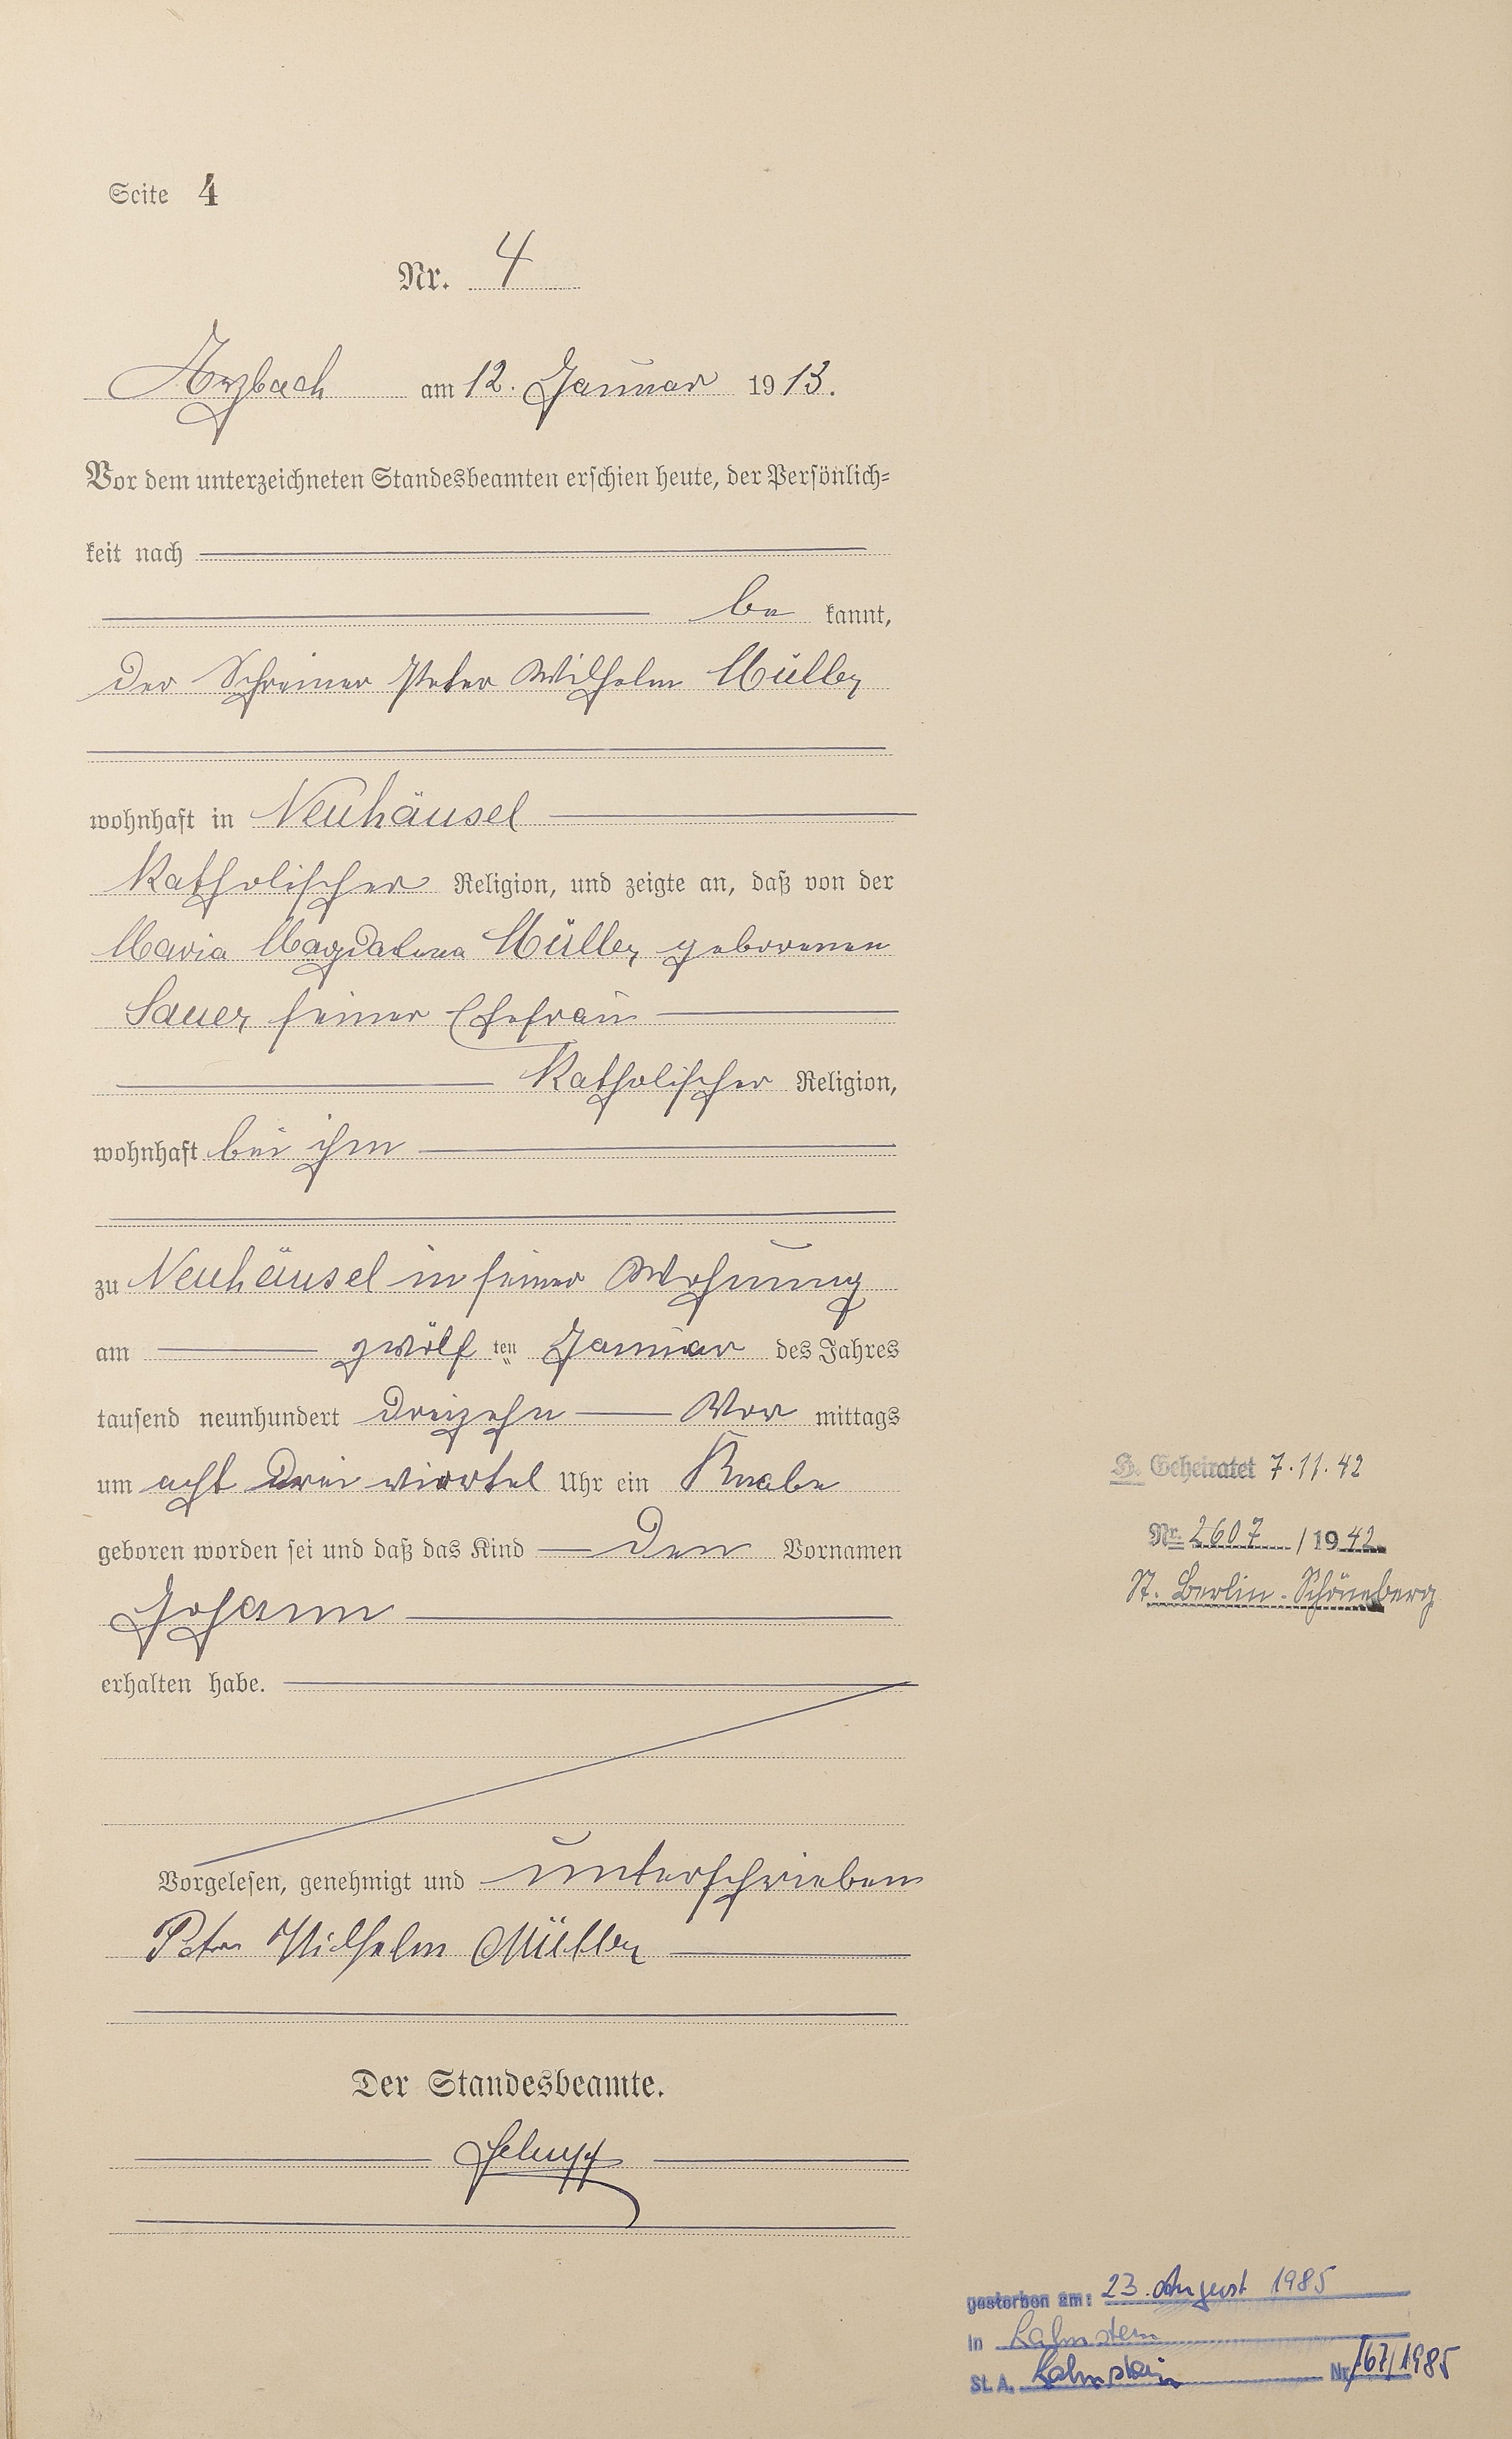 Seite 4
Nr. 4
Arzbach am 12. Januar 1913.
Vor dem unterzeichneten Standesbeamten erschien heute, der Persönlich-
keit nach
be kannt,
der Schreiner Peter Wilhelm Müller
wohnhaft in Neuhäusel
katholischer Religion, und zeigte an, daß von der
Maria Magdalena Müller geborenen
Sauer seiner Ehefrau
katholischer Religion,
wohnhaft bei ihm
zu Neuhäusel in seiner Wohnung
am zwölf ten Januar des Jahres
tausend neunhundert dreizehn Vor mittags
um acht drei viertel Uhr ein Knabe
geboren worden sei und daß das Kind den Vornamen
Johann
erhalten habe.
Vorgelesen, genehmigt und unterschrieben
Peter Wilhelm Müller
Der Standesbeamte.
H. Geheiratet 7.11.42
Nr. 2607 / 1942
St. Berlin-Schöneberg
gestorben am: 23. August 1985
in Lahnstein
St. A. Lahnstein Nr. 167/1985